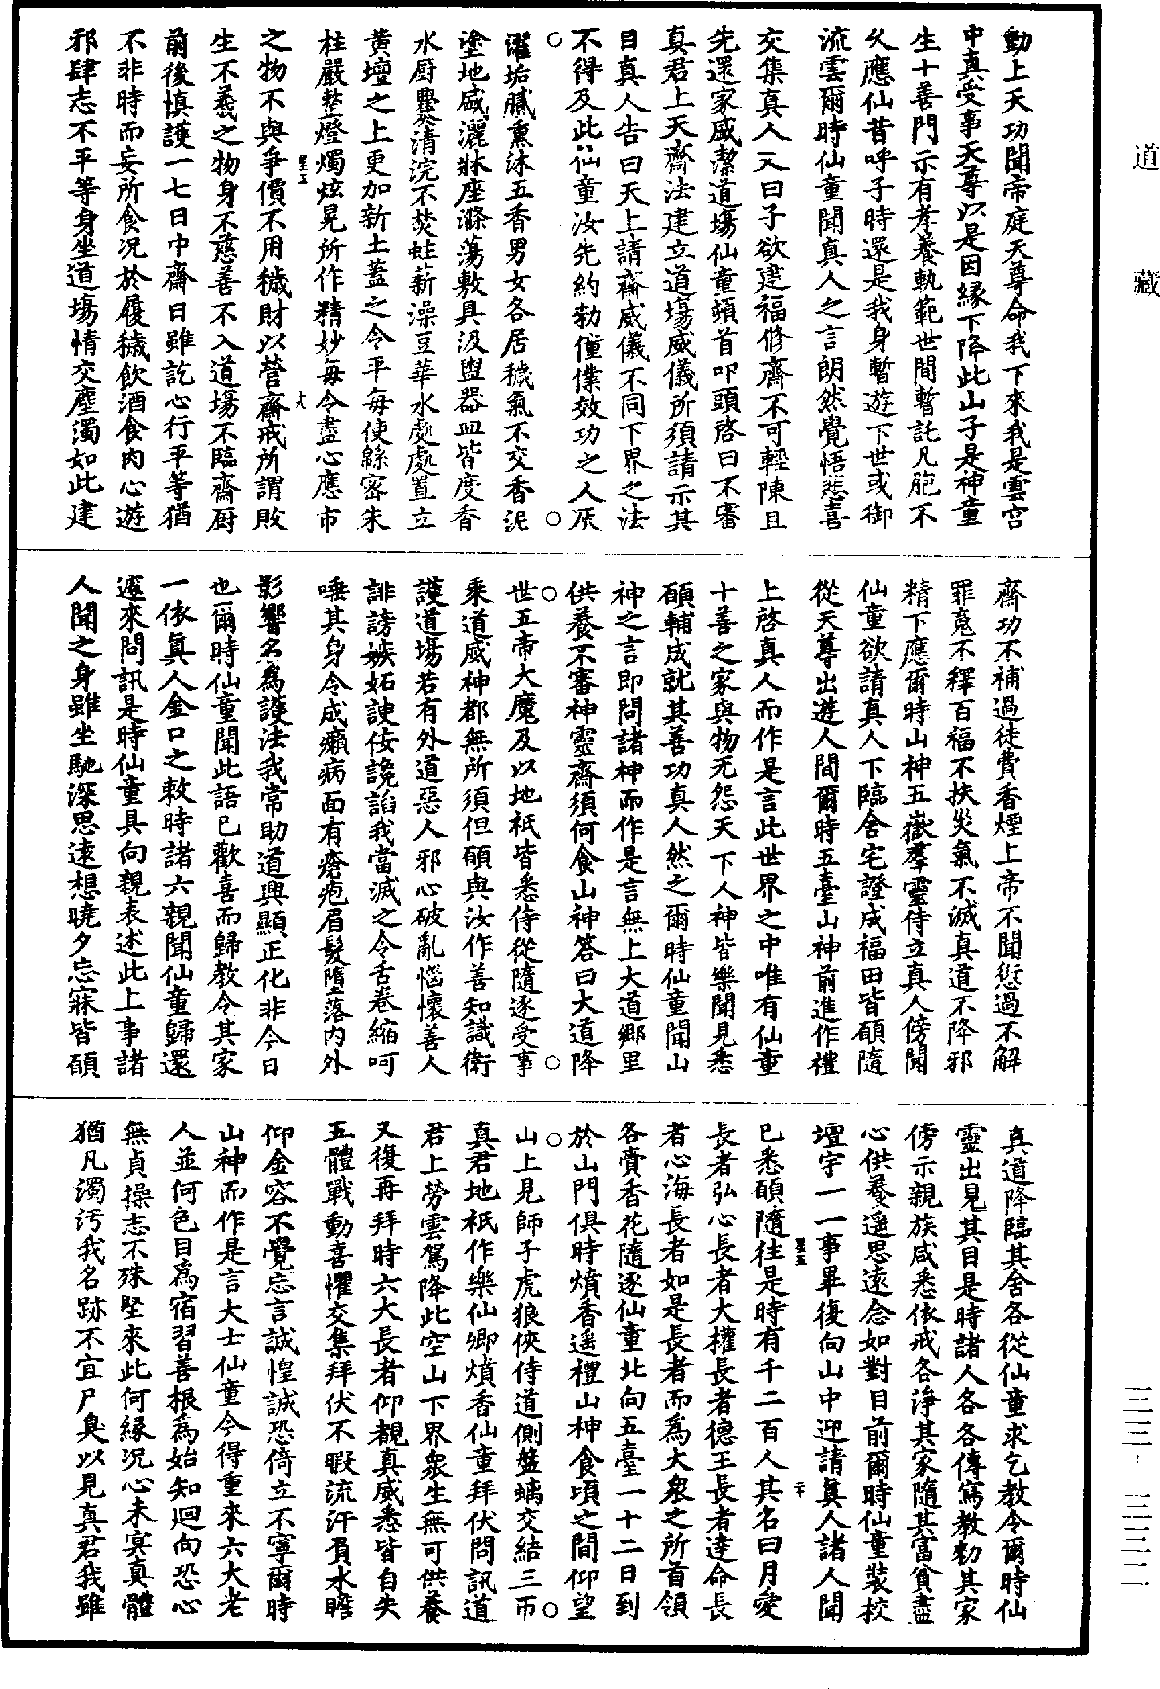 道藏
三三·三三二
動上天功聞帝庭天尊命我下來我是雲宮
中真受事天尊以是因緣下降此山子是神童
生十善門示有孝養軌範世間暫託凡胞不
久應仙昔呼子時還是我身暫遊下世或御
流雲爾時仙童聞真人之言朗然覺悟悲喜
交集真人又曰子欲建福修齋不可輕陳且
先還家盛潔道場仙童頓首叩頭啓曰不審
真君上天齋法建立道場威儀所須請示其
目真人告曰天上請齋威儀不同下界之法
不得及此仙童汝先約勑僮僕效功之人灰
濯垢膩熏沐五香男女各居穢氣不交香泥
塗地盛灑牀座滌蕩敷具汲罌器皿皆度香
水厨爨清浣不焚蛀薪澡豆華水處處置立
黄壇之上更加新土蓋之令平每使緜密朱
柱嚴整燈燭炫晃所作精妙每令盡心應市
之物不與爭價不用穢財以營齋戒所謂敗
生不義之物身不慈善不入道場不臨齋厨
前後慎護一七日中齋日雖訖心行平等猶
不非時而妄所食況於履穢飲酒食肉心遊
邪肆志不平等身坐道場情交塵濁如此建
齋功不補過徒費香煙上帝不聞愆過不解
罪寃不釋百福不扶災氣不滅真道不降邪
精下應爾時山神五嶽羣靈侍立真人傍聞
仙童欲請真人下臨舍宅證成福田皆願隨
從天尊出遊人間爾時五臺山神前進作禮
上啓真人而作是言此世界之中唯有仙童
十善之家與物无怨天下人神皆樂聞見悉
願輔成就其善功真人然之爾時仙童聞山
神之言即問諸神而作是言無上大道鄉里
供養不審神靈齋須何食山神答曰大道降
世五帝大魔及以地祇皆悉侍從隨逐受事
乘道威神都無所須但願與汝作善知識衛
護道場若有外道惡人邪心破亂惱懷善人
誹謗嫉妬諛佞讒諂我當滅之令舌卷縮呵
唾其身令成癩病面有瘡疱眉髮墮落内外
影響名為護法我常助道興顯正化非今日
也爾時仙童聞此語已歡喜而歸教令其家
一依真人金口之敕時諸六親聞仙童歸還
遝來問訊是時仙童具向親表述此上事諸
人聞之身雖坐馳深思遠想曉夕忘寐皆願
真道降臨其舍各從仙童求乞教令爾時仙
靈出見其目是時諸人各各傳寫教勑其家
傍示親族咸悉依戒各淨其家隨其富貧盡
心供養遥思遠念如對目前爾時仙童裝校
壇宇一一事畢復向山中迎請真人諸人聞
已悉願隨往是時有千二百人其名曰月愛
長者弘心長者大權長者德王長者達命長
者心海長者如是長者而為大衆之所首領
各賫香花隨逐仙童北向五臺一十二日到
於山門俱時燌香遥禮山神食頃之間仰望
山上見師子虎狼俠侍道側盤螭交結三帀
真君地祇作樂仙卿燌香仙童拜伏問訊道
君上勞雲駕降此空山下界衆生無可供養
又復再拜時六大長者仰覩真威悉皆自失
五體戰動喜懼交集拜伏不暇流汗頁水瞻
仰金容不覺忘言誠惶誠恐倚立不寧爾時
山神而作是言大士仙童今得重來六大老
人並何色目為宿習善根為始知迴向恐心
無貞操志不殊堅來此何緣況心未冥真體
猶凡濁汚我名跡不宜尸臭以見真君我雖